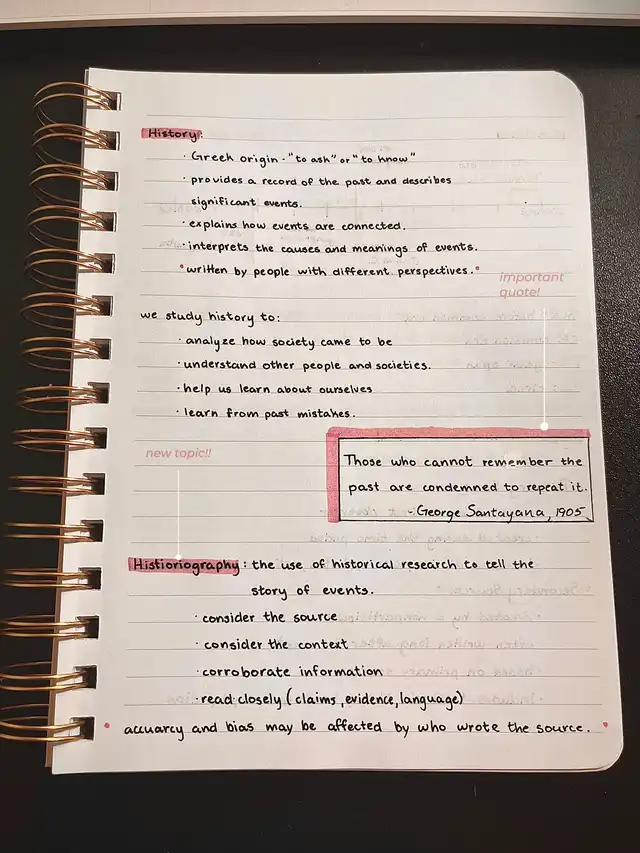 History:
· Greek origin - "to ask" or "to know"
· provides a record of the past and describes
significant events.
· explains how events are connected.
· interprets the causes and meanings of events.
"written by people with different perspectives."
important
quote!
we study history to:
· analyze how society came to be
· understand other people and societies.
· help us learn about ourselves
· learn from past mistakes.
new topic!!
Those who cannot remember the
past are condemned to repeat it.
- George Santayana, 1905
Histioriography: the use of historical research to tell the
story of events.
· consider the source
· consider the context
· corroborate information
· read closely (claims, evidence, language)
• accuarcy and bias may be affected by who wrote the source. •